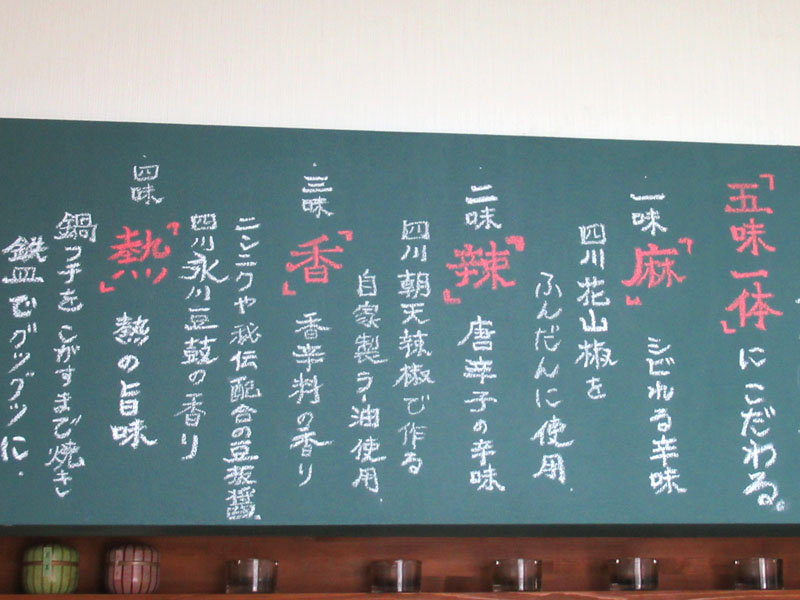 「五味一体」にこだわる。
一味「麻」シビれる辛味
四川花山椒を
ふんだんに使用.
二味「辣」唐辛子の辛味
四川朝天辣椒で作る
自家製ラー油使用.
・三味「香」香辛料の香り
ニンニクや秘伝配合の豆板醤
四川永川豆鼓の香り
・四味「熱」熱の旨味
鍋フチをこがすまで焼き
鉄皿でグツグツに.